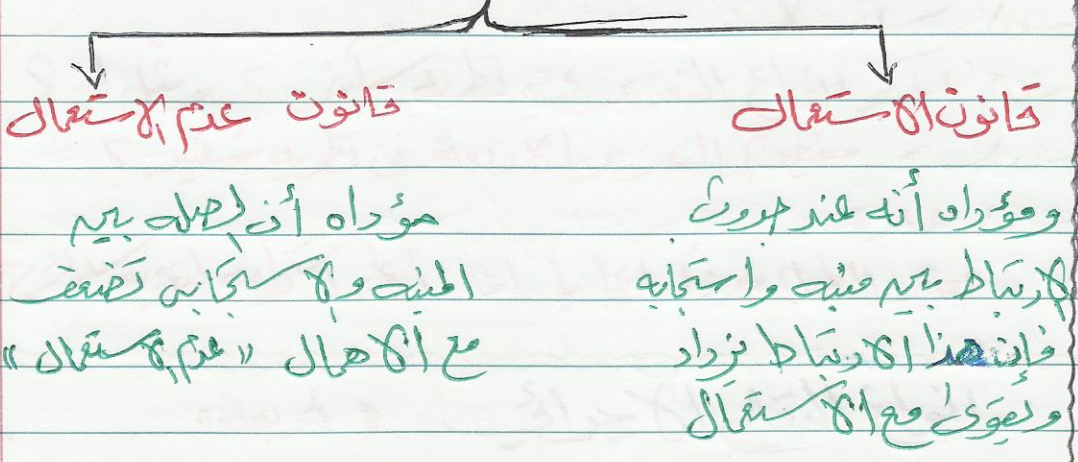 قانون الاستعمال
ومؤداه أنه عند حدوث
الارتباط بين منبه واستجابه
فإن هذا الارتباط يزداد
ويقوى مع الاستعمال
قانون عدم الاستعمال
مؤداه أن الصله بين
المنبه والاستجابه تضعف
مع الاهمال «عدم الاستعمال»